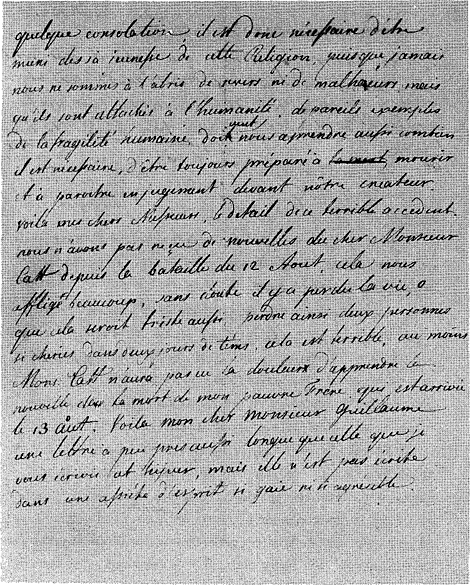 quelque consolation, il est donc nécessaire d'être
muni dès sa jeunesse de cette Religion, puisque jamais
nous ne somms à l'abris de revers ni de malheurs, mais
qu'ils sont attachés à l'humanité. de pareils exemples
de la fragilité humaine, doit nous aprendre aussi combien
il est nécessaire, d'être toujours préparé à la mort mourir
et à paroitre en jugement devant nôtre createur.
voila mes chers Messieurs, le detail de ce terrible accident.
nous n'avons pas reçu de nouvelles du cher Monsieur
Catt depuis la bataille du 12 Aout, cela nous
afflige beaucoup, sans doute il y a perdu la vie, o
que cela seroit triste aussi, perdre ainsi deux personnes
si cheries dans deux jours de têms, cela est terrible, au moins
Mons. Catt n'aura pas eu la douleur d'apprendre la
nouvelle de la mort de mon pauvre Frère qui est arrivée
le 13 août. Voila mon cher Monsieur Guillaume
une lettre à peu près aussi longue que celle que je
vous écrivis cet hyver, mais elle n'est pas écrite
dans une assiéte d'esprit si gaie ni si agréable.